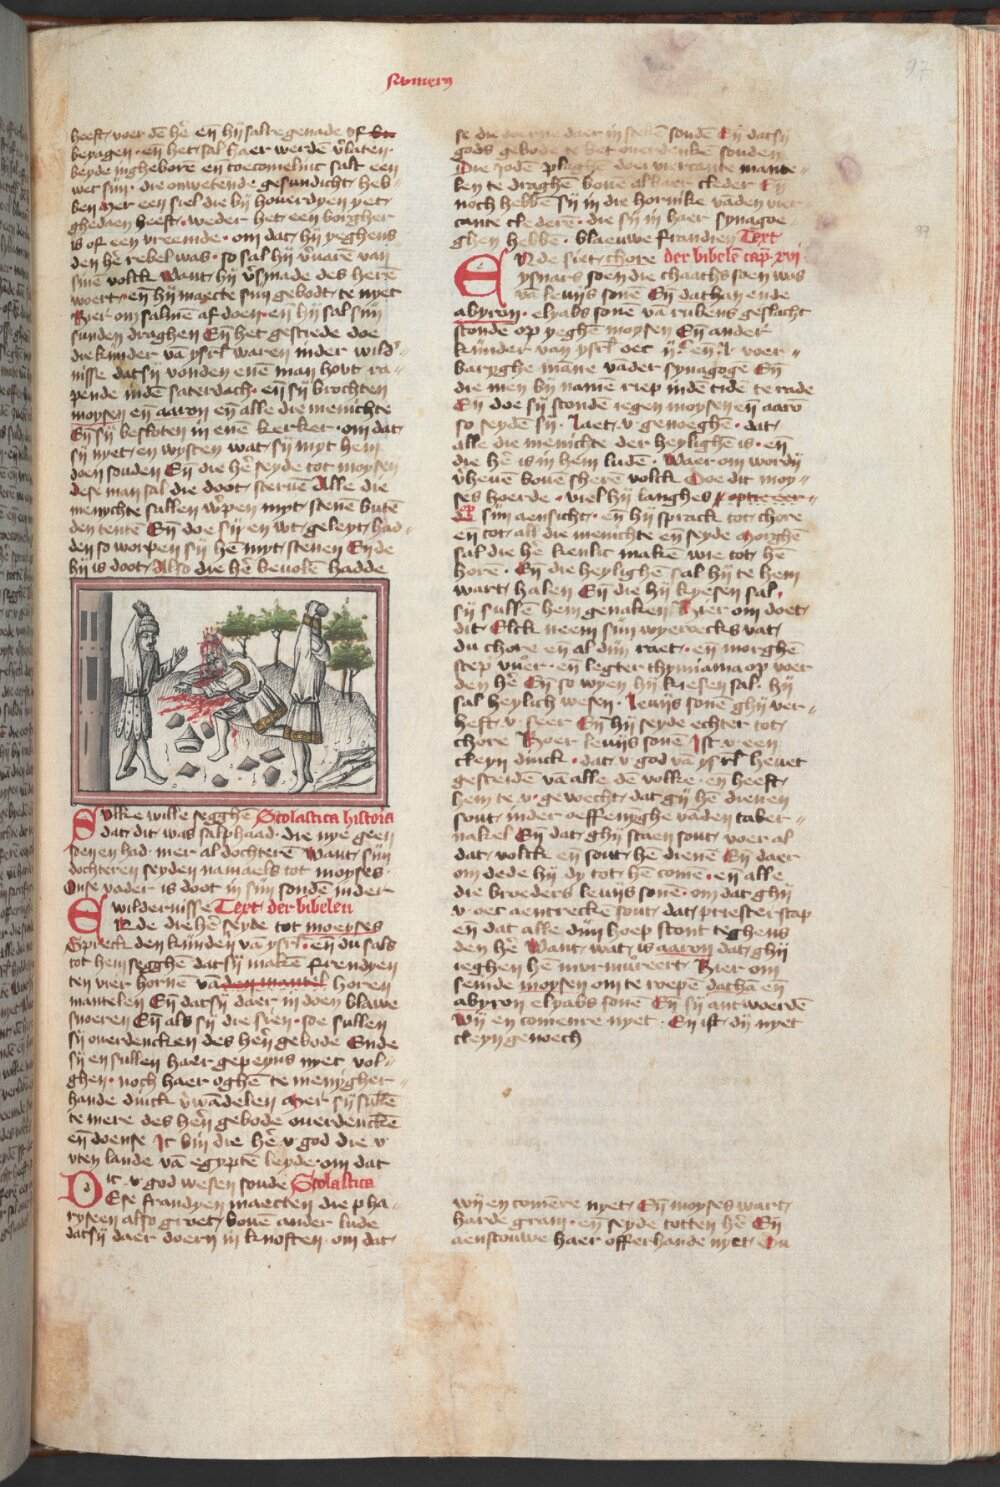 Numeri
97
heeft voer dē hr̄e en̄ hij sal v̄cgenade of
bejagen · en̄ het sal haer werdē v̄laten ·
beyde ingheborē en̄ toecomelinc salt een
wet sijn · die onwetende gesundicht heb-
ben Mer een siel die bij houerdyen yet
ghedaen heeft · weder het een borgher
is of een vreemde · om dat hij yeghens
den hr̄e rebel was · so sal hij v̄uarē van
sinē volck Want hij v̄smade des herē
woert · en̄ hij maecte sijn gebodt te nyet
Hier om salmē af doen · en̄ hij sal sijn
sunden draghen En̄ het gesciede doe
die kijnder vā ysrl̄ waren inder wild-
nisse dat sij vonden enē man hout ra-
pende indē saterdach · en̄ sij brochten
moysen en̄ aaron en̄ alle die menichte
En̄ sij besloten in enē kerker · om dat
sij nyet en wysten wat sij myt hem
doen souden En̄ die hr̄e seyde tot moysen
dese man sal die doot steruē Alle die
menychte sullen w̄pen myt stenē butē
den tentē En̄ doe sij en wt geleyt had-
den so worpen sij hē myt stenen En̄ de
hij is doot Also die hr̄e beuolē hadde
Sulke wille segghē Scolastica historia
dat dit was salphaad · die nye geen
soen en had · mer al dochterē Want sijn
dochteren seyden namaels tot moyses ·
Onse vader is doot in sijn sondē inder
wildernisse Text der bibelen
ENde die hr̄e seyde tot moeyses
Spreck den kijndē vā ysrl̄ · en̄ du sals
tot hem segghē dat sij makē frendyen
ten vier hornē vā den mantel horen
mantelen En̄ dat sij daer in doen blawe
snoeren En̄ als sij die sien · soe sullen
sij ouerdencken des herē gebode Ende
sij en sullen haer gepeyns nyet vol-
ghen · noch haer oghē te menigher-
hande dinck v̄wādelen Mer sij sullē
te mere des herē gebode ouerdenckē
en̄ doense Ic bin die hr̄e v god die v
vten lande vā egyptē leyde · om dat
Ic v god wesen soude Scolastica
DEse frandyen maecten die pha-
ryseen also groet · bouē ander lude
dat sij daer doern in knoften · om dat
se die doerne daer in stekē soudē En̄ dat sij
gods gebode te bet ouerdenkē souden
Die jodē plaghē doe viercante mante-
len te draghē bouē al haer cleder En̄
noch hebbē sij in die hornike vādē vier-
cante clederē · die sij in haer synagoe-
ghen hebbē · blaeuwe frandien Text
ENde siet chore der bibelē cap̄ · xvi
ysaars soen die chaaths soen was
vā leuijs sonē En̄ dathan ende
abyron · elyabs sone vā rubens geslacht
stonde op yeghē moysen En̄ ander
kijnder van ysrl̄ oec ij.c en̄ .l. voer-
baryghe māne vāder synagoge En̄
die men bij namē riep indē tidē te rade
En̄ doe sij stondē iegen moysen en̄ aarō
so seydē sij · Laet v genoeghē · dat
alle die menichte der heylighē is · en̄
die hr̄e is in hem ludē · Waer om wordij
v̄heuē bouē sherē volck Doe dit moy-
ses hoerde · viel hij langhes
op sijn aensicht · en̄ hij sprack tot chore
en̄ tot all die menichte en̄ seyde Morghē
sal die hr̄e kenlic makē wie tot hē
horē · En̄ die heylighē sal hij te hem
wart halen En̄ die hij kyesen sal ·
sij sullē hem genaken Hier om doet
dit Elck neem sijn wyeroecks vat
du chore en̄ al dijn raet · en̄ morghē
step vuer · en̄ legter thymiama op voer
den hr̄e En̄ so wyen hij kiesen sal · hij
sal heylich wesen · Leuijs sone ghij ver-
heft · v · seer En̄ hij seyde echter tot
chore Hoer leuijs sonē Ist v een
cleyn dinck · dat v god vā ysrl̄ heuet
gesceidē vā alle dē volke · en̄ heeft
hem te v gewecht dat gij hē dienen
sout inder oeffenyghe vāden taber-
nakel En̄ dat ghij staen sout voer al
dat volck en̄ sout hē dienē En̄ daer
om dede hij dy tot hē comē · en̄ alle
die broeders leuijs sonē · om dat ghij
v oec aentreckē sout dat priesterscap
en̄ dat alle dijn hoep stont teghens
den hr̄e Want wat is aaron dat ghij
ieghen hē murmureert Hier om
seinde moysen om te roepē dathā en̄
abyron elyabs sonē En̄ sij antwerdē
Wij en comen re nyet · En̄ ist dij nyet
cleyn genoech
wij en comēre nyet En̄ moyses wart
harde gram · en̄ seyde totten hr̄e En̄
aenscouwe haer offerhande nyet Du